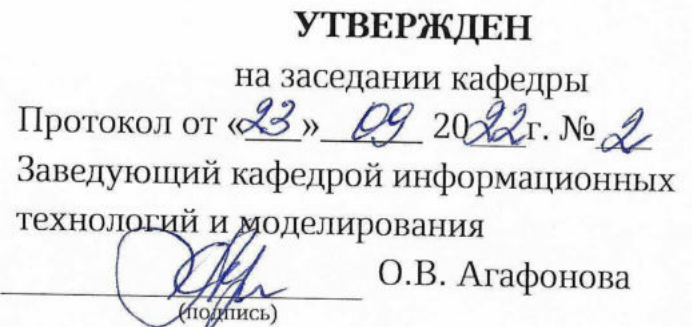 УТВЕРЖДЕН
на заседании кафедры
Протокол от «23» 09 2022г. № 2
Заведующий кафедрой информационных
технологий и моделирования
О.В. Агафонова
(подпись)